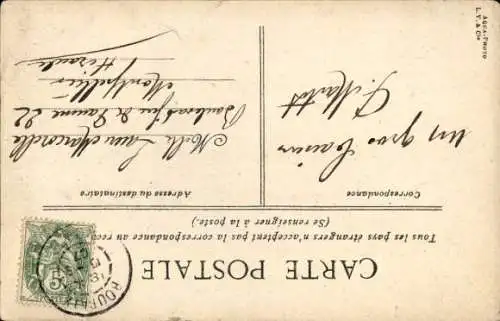 CARTE POSTALE
Tous les pays étrangers n'acceptent pas la correspondance au
(Se renseigner à la poste.)
Correspondance
Adresse du destinataire
Un gros baiser
Melle Laure
Boulevard Jeu de Paume 22
Montpellier
Hérault
AQUA-PHOTO
L. V. & Cie
5